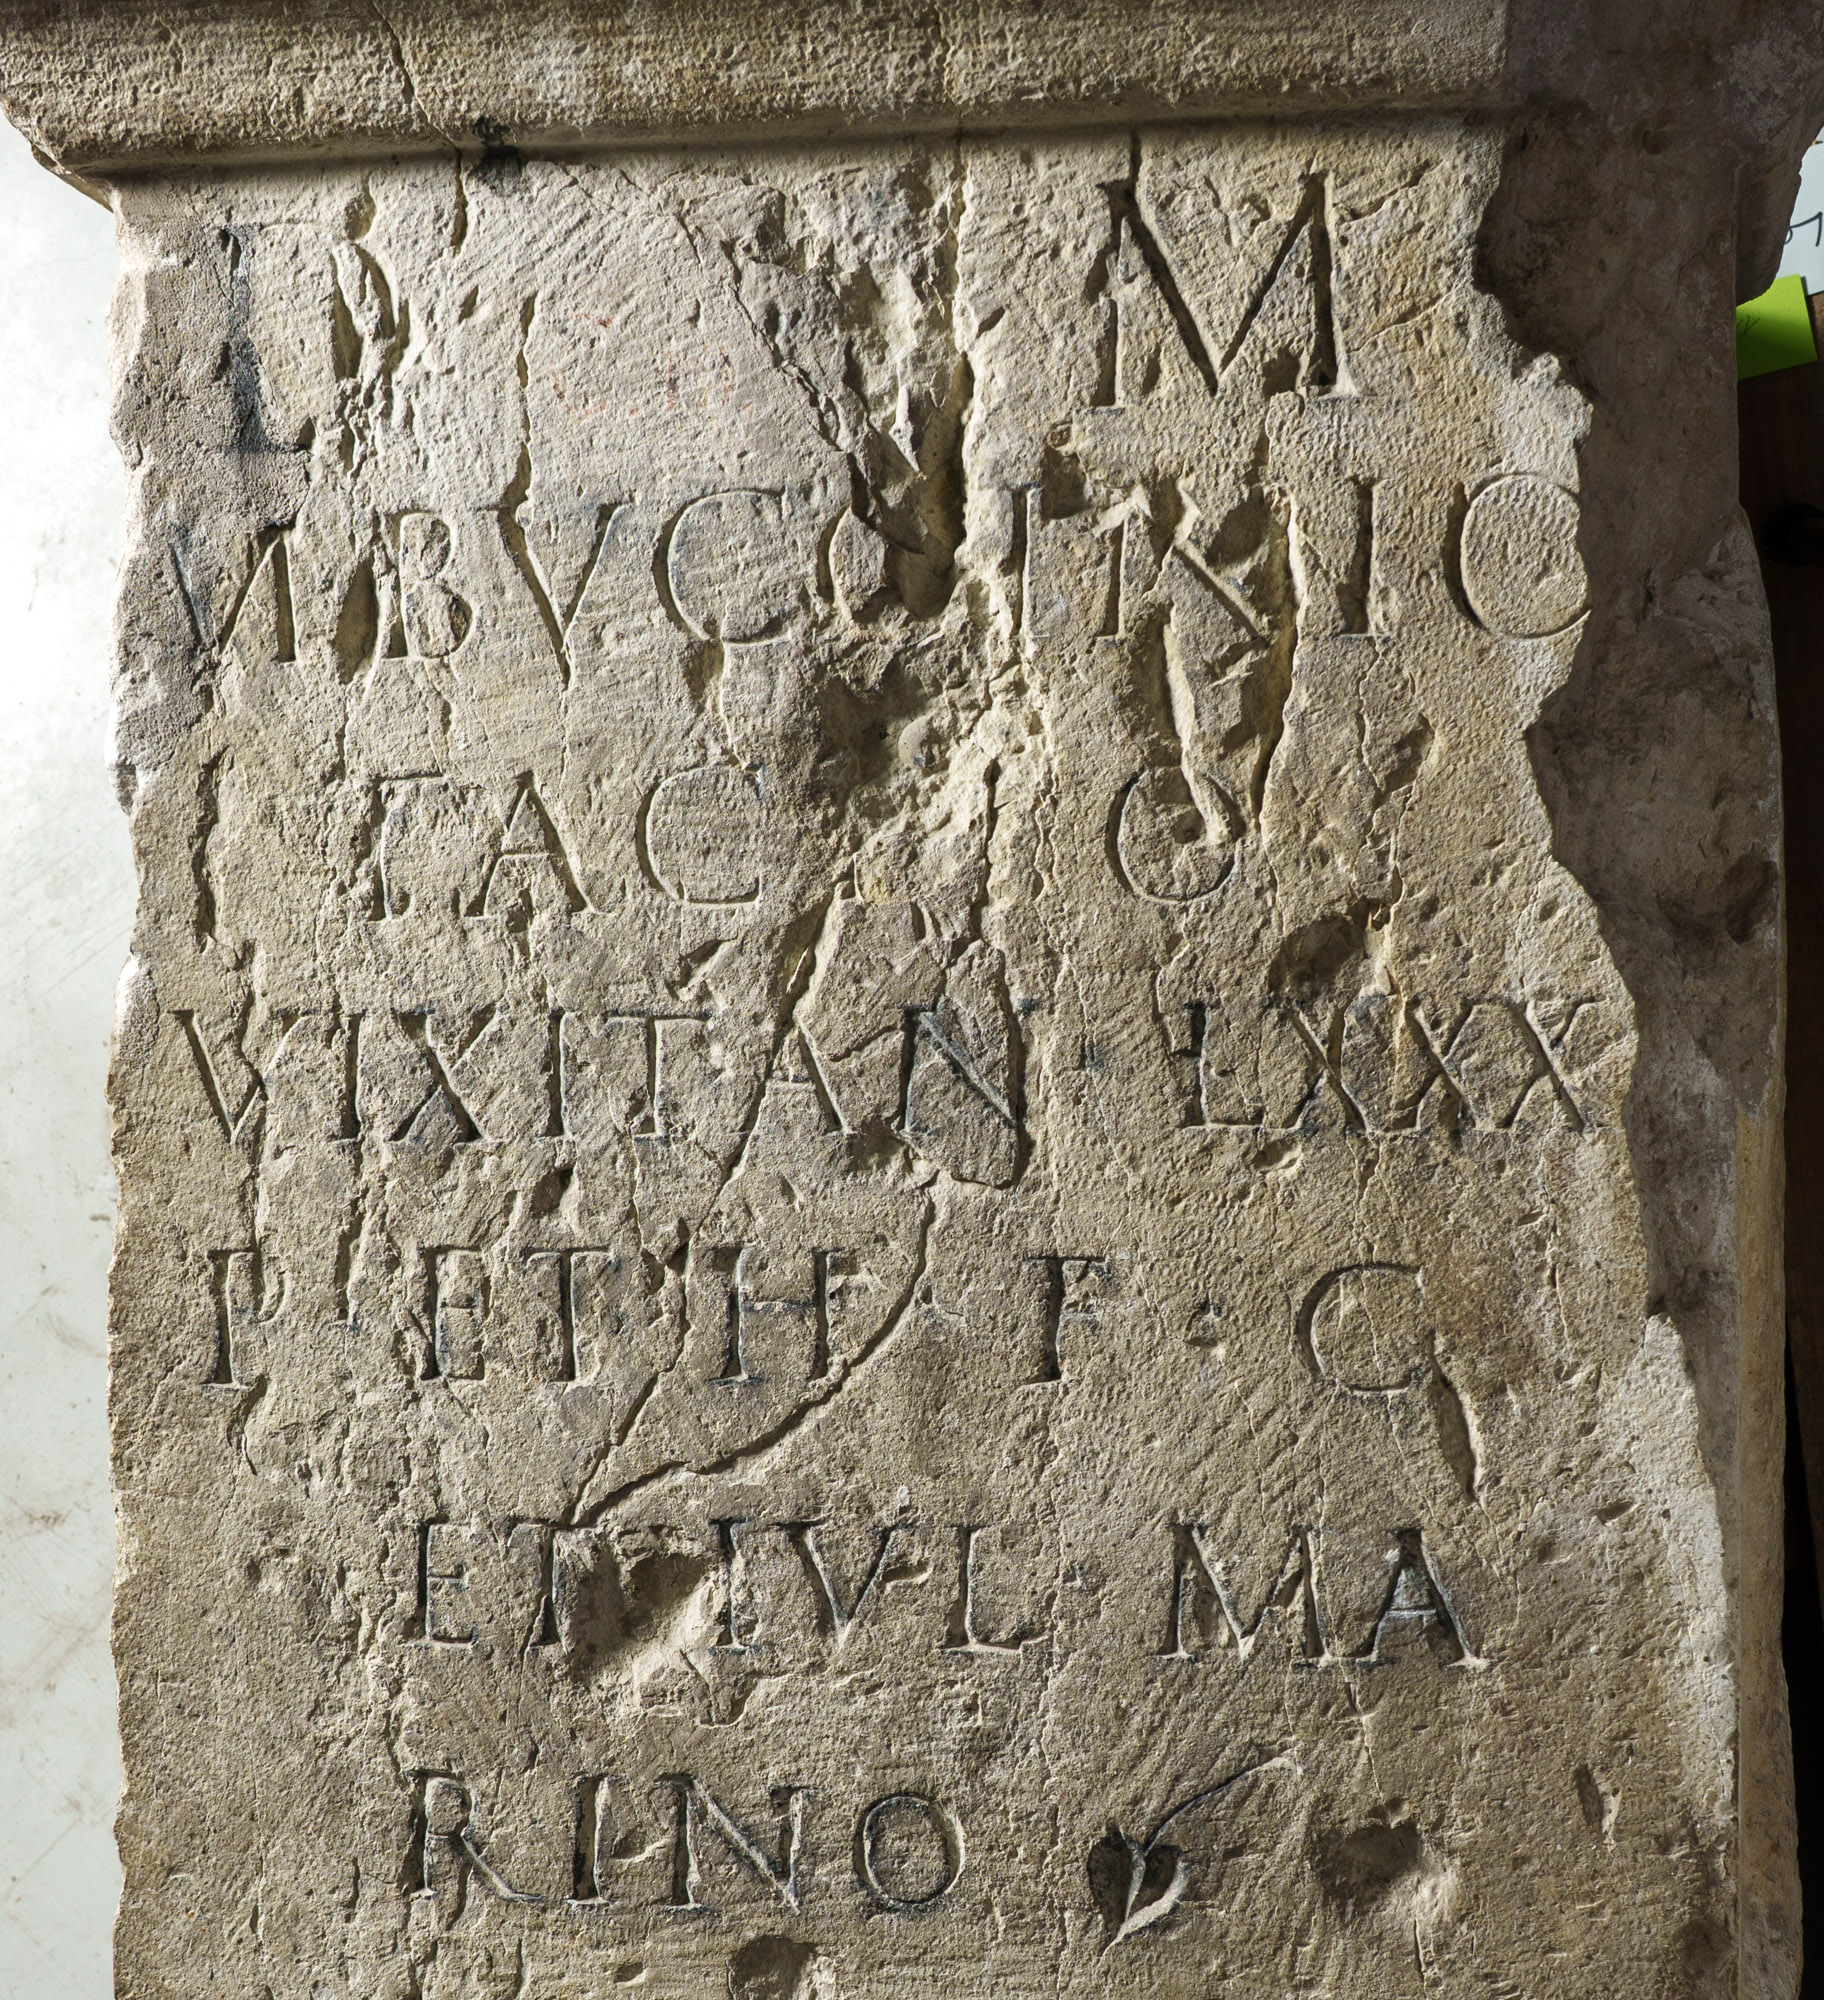 D M
N BVCCINIO
TAC O
VIXIT AN LXXX
P ET H F C
ET IVL MA
RINO